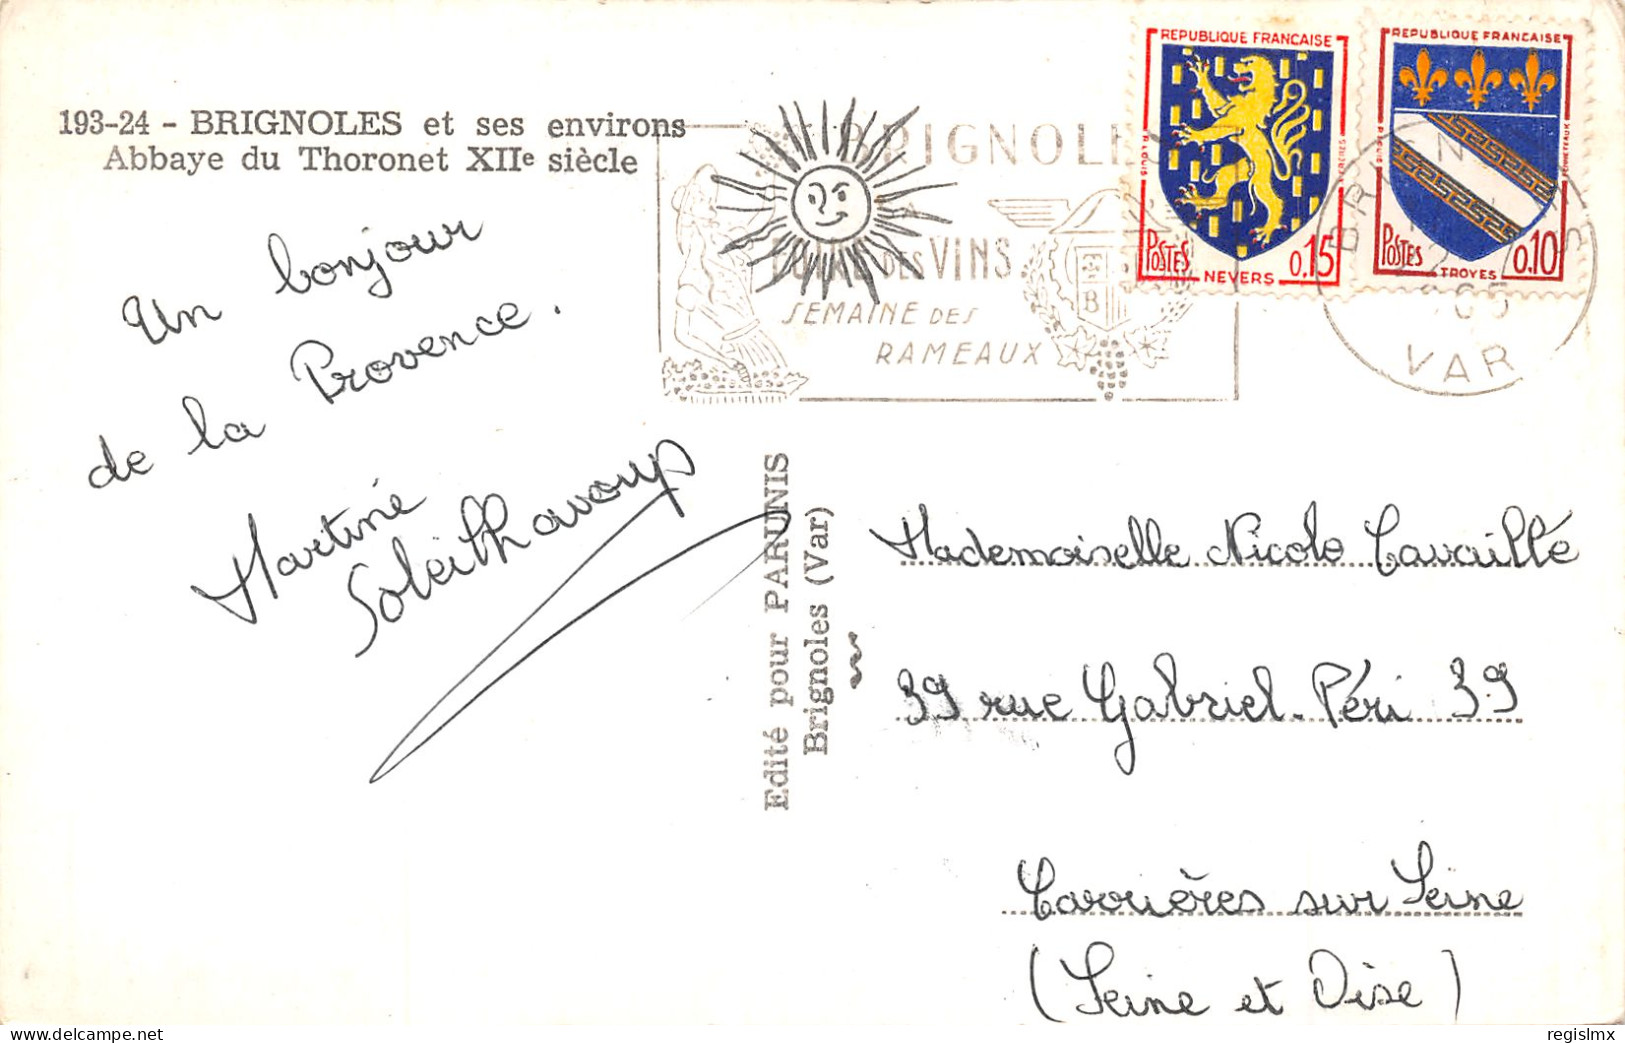 193-24 - BRIGNOLES et ses environs
Abbaye du Thoronet XIIe siècle
Un bonjour
de la Provence.
Martine
Soleilhavoup
BRIGNOLES
FOIRE DES VINS
SEMAINE DES
RAMEAUX
B
REPUBLIQUE FRANÇAISE
POSTES
0.15
NEVERS
REPUBLIQUE FRANÇAISE
POSTES
0.10
TROYES
VAR
Edité pour PARUNIS
Brignoles (Var)
Mademoiselle Nicole Cavaillé
39 rue Gabriel-Péri 39
Carrières sur Seine
(Seine et Oise)
delcampe.net
regislmx